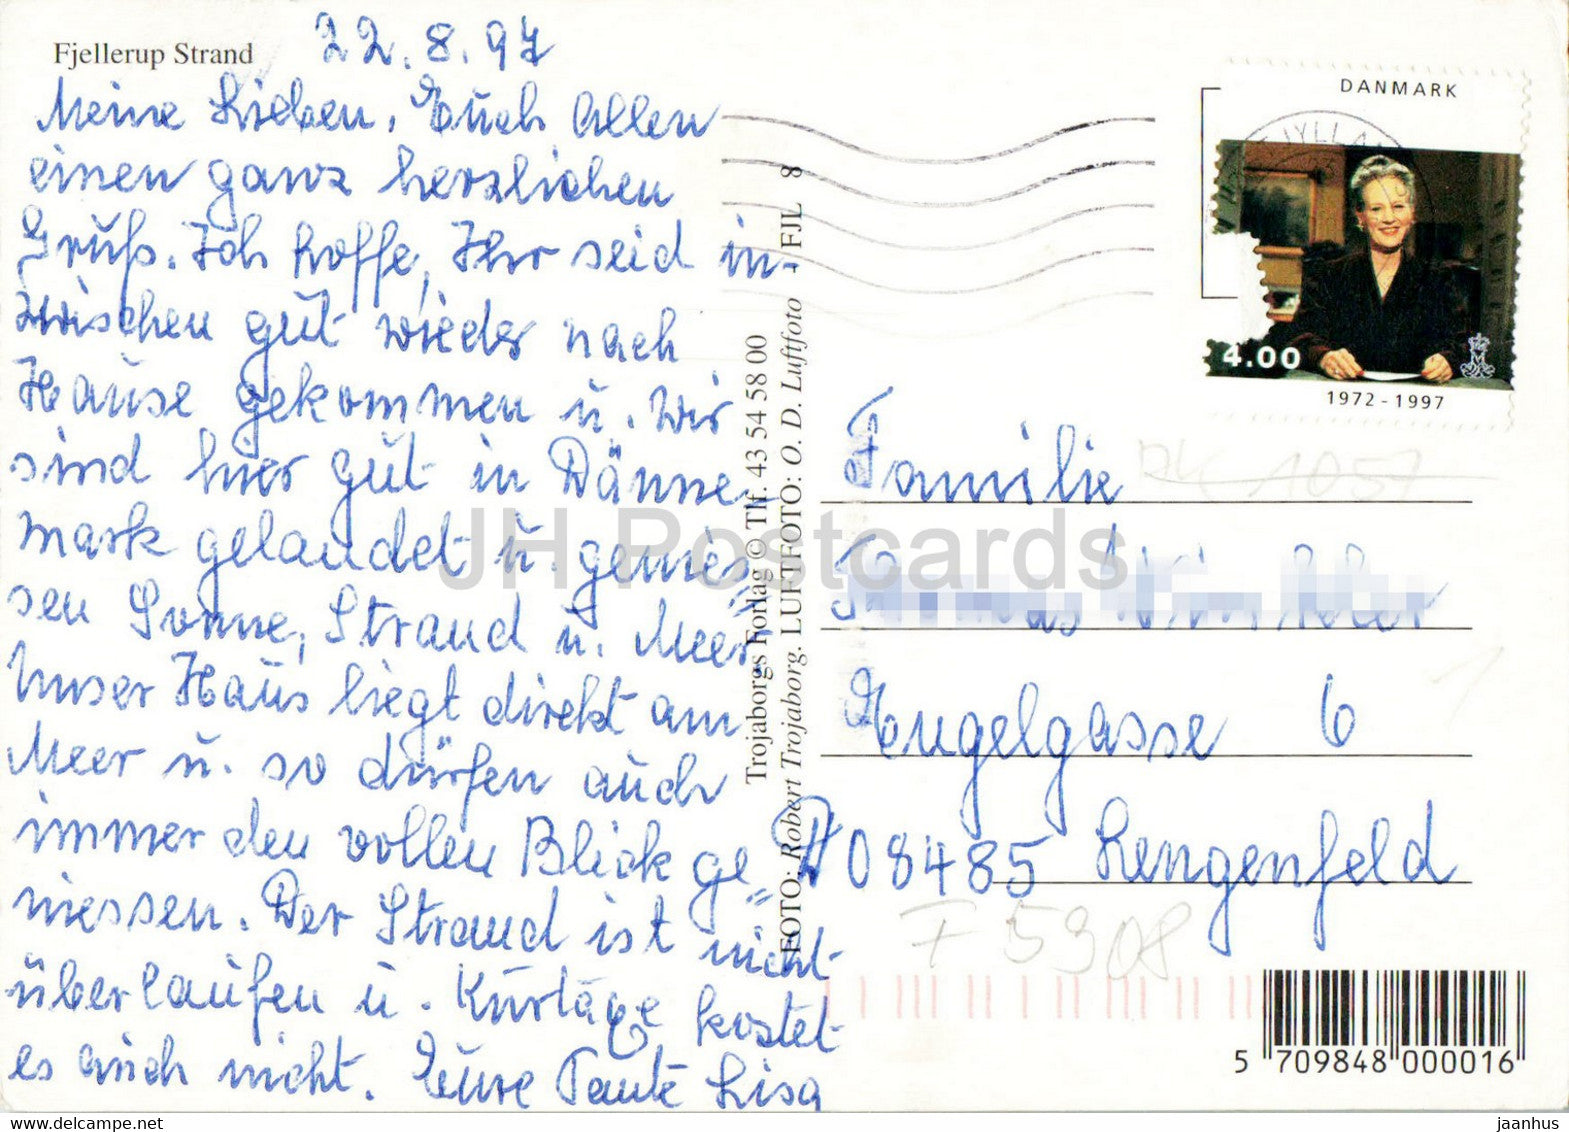 Fjellerup Strand
22.8.97
Meine Lieben, Euch Allen
einen ganz herzlichen
Gruß. Ich hoffe, Ihr seid in-
zwischen gut wieder nach
Hause gekommen u. wir
sind hier gut in Dänne-
mark gelandet u. genies=
sen Sonne, Strand u. Meer.
Unser Haus liegt direkt am
Meer u. so dürfen auch
immer den vollen Blick ge=
niessen. Der Strand ist nicht
überlaufen u. Kurtaxe kostet
es auch nicht. Eure Tante Lisa
Trojaborgs Forlag © Tlf. 43 54 58 00
FOTO: Robert Trojaborg. LUFTFOTO: O. D. Luftfoto - FJL 8
DANMARK
JYLLA
4.00
1972 - 1997
Familie
Engelgasse 6
D 08485 Lengenfeld
F 5908
JH Postcards
5 709848 000016
delcampe.net
jaanhus